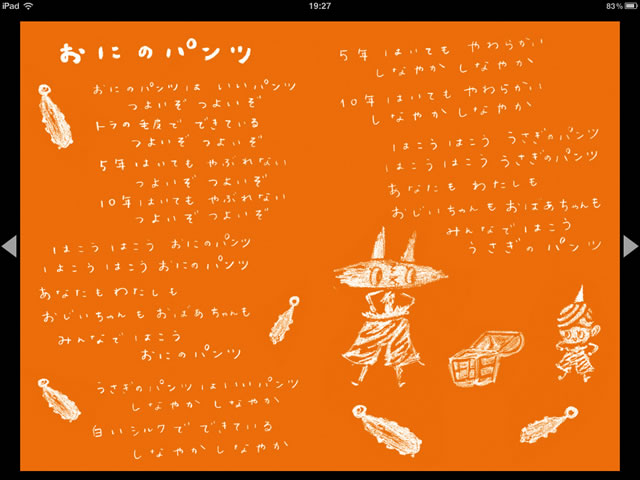 iPad
19:27
83%
おにのパンツ
おにのパンツは いいパンツ
つよいぞ つよいぞ
トラの毛皮で できている
つよいぞ つよいぞ
5年はいても やぶれない
つよいぞ つよいぞ
10年はいても やぶれない
つよいぞ つよいぞ
はこう はこう おにのパンツ
はこう はこう おにのパンツ
あなたも わたしも
おじいちゃんも おばあちゃんも
みんなで はこう
おにの パンツ
うさぎのパンツ は いいパンツ
しなやか しなやか
白い シルクで できている
しなやか しなやか
5年 はいても やわらかい
しなやか しなやか
10年 はいても やわらかい
しなやか しなやか
はこう はこう うさぎのパンツ
はこう はこう うさぎのパンツ
あなたも わたしも
おじいちゃんも おばあちゃんも
みんなで はこう
うさぎの パンツ